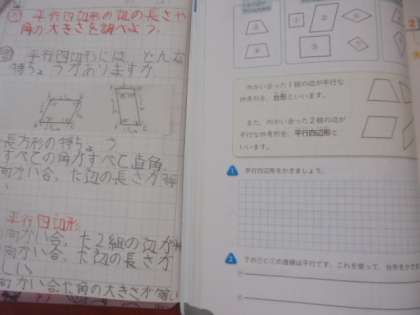 平行四辺形の辺の長さや
角の大きさを調べよう。
平行四辺形には、どんな
特ちょうがありますか。
長方形の特ちょう
すべての角がすべて直角
向かい合った辺の長さが
平行四辺形
向かい合った2組の辺が
向かい合った辺の長さが
しい
向かい合った角の大きさが等しい
向かい合った1組の辺が平行な
四角形を、台形といいます。
また、向かい合った2組の辺が
平行な四角形を、平行四辺形と
いいます。
1 平行四辺形をかきましょう。
2 下の
の直線は平行です。これを使って、台形をかき